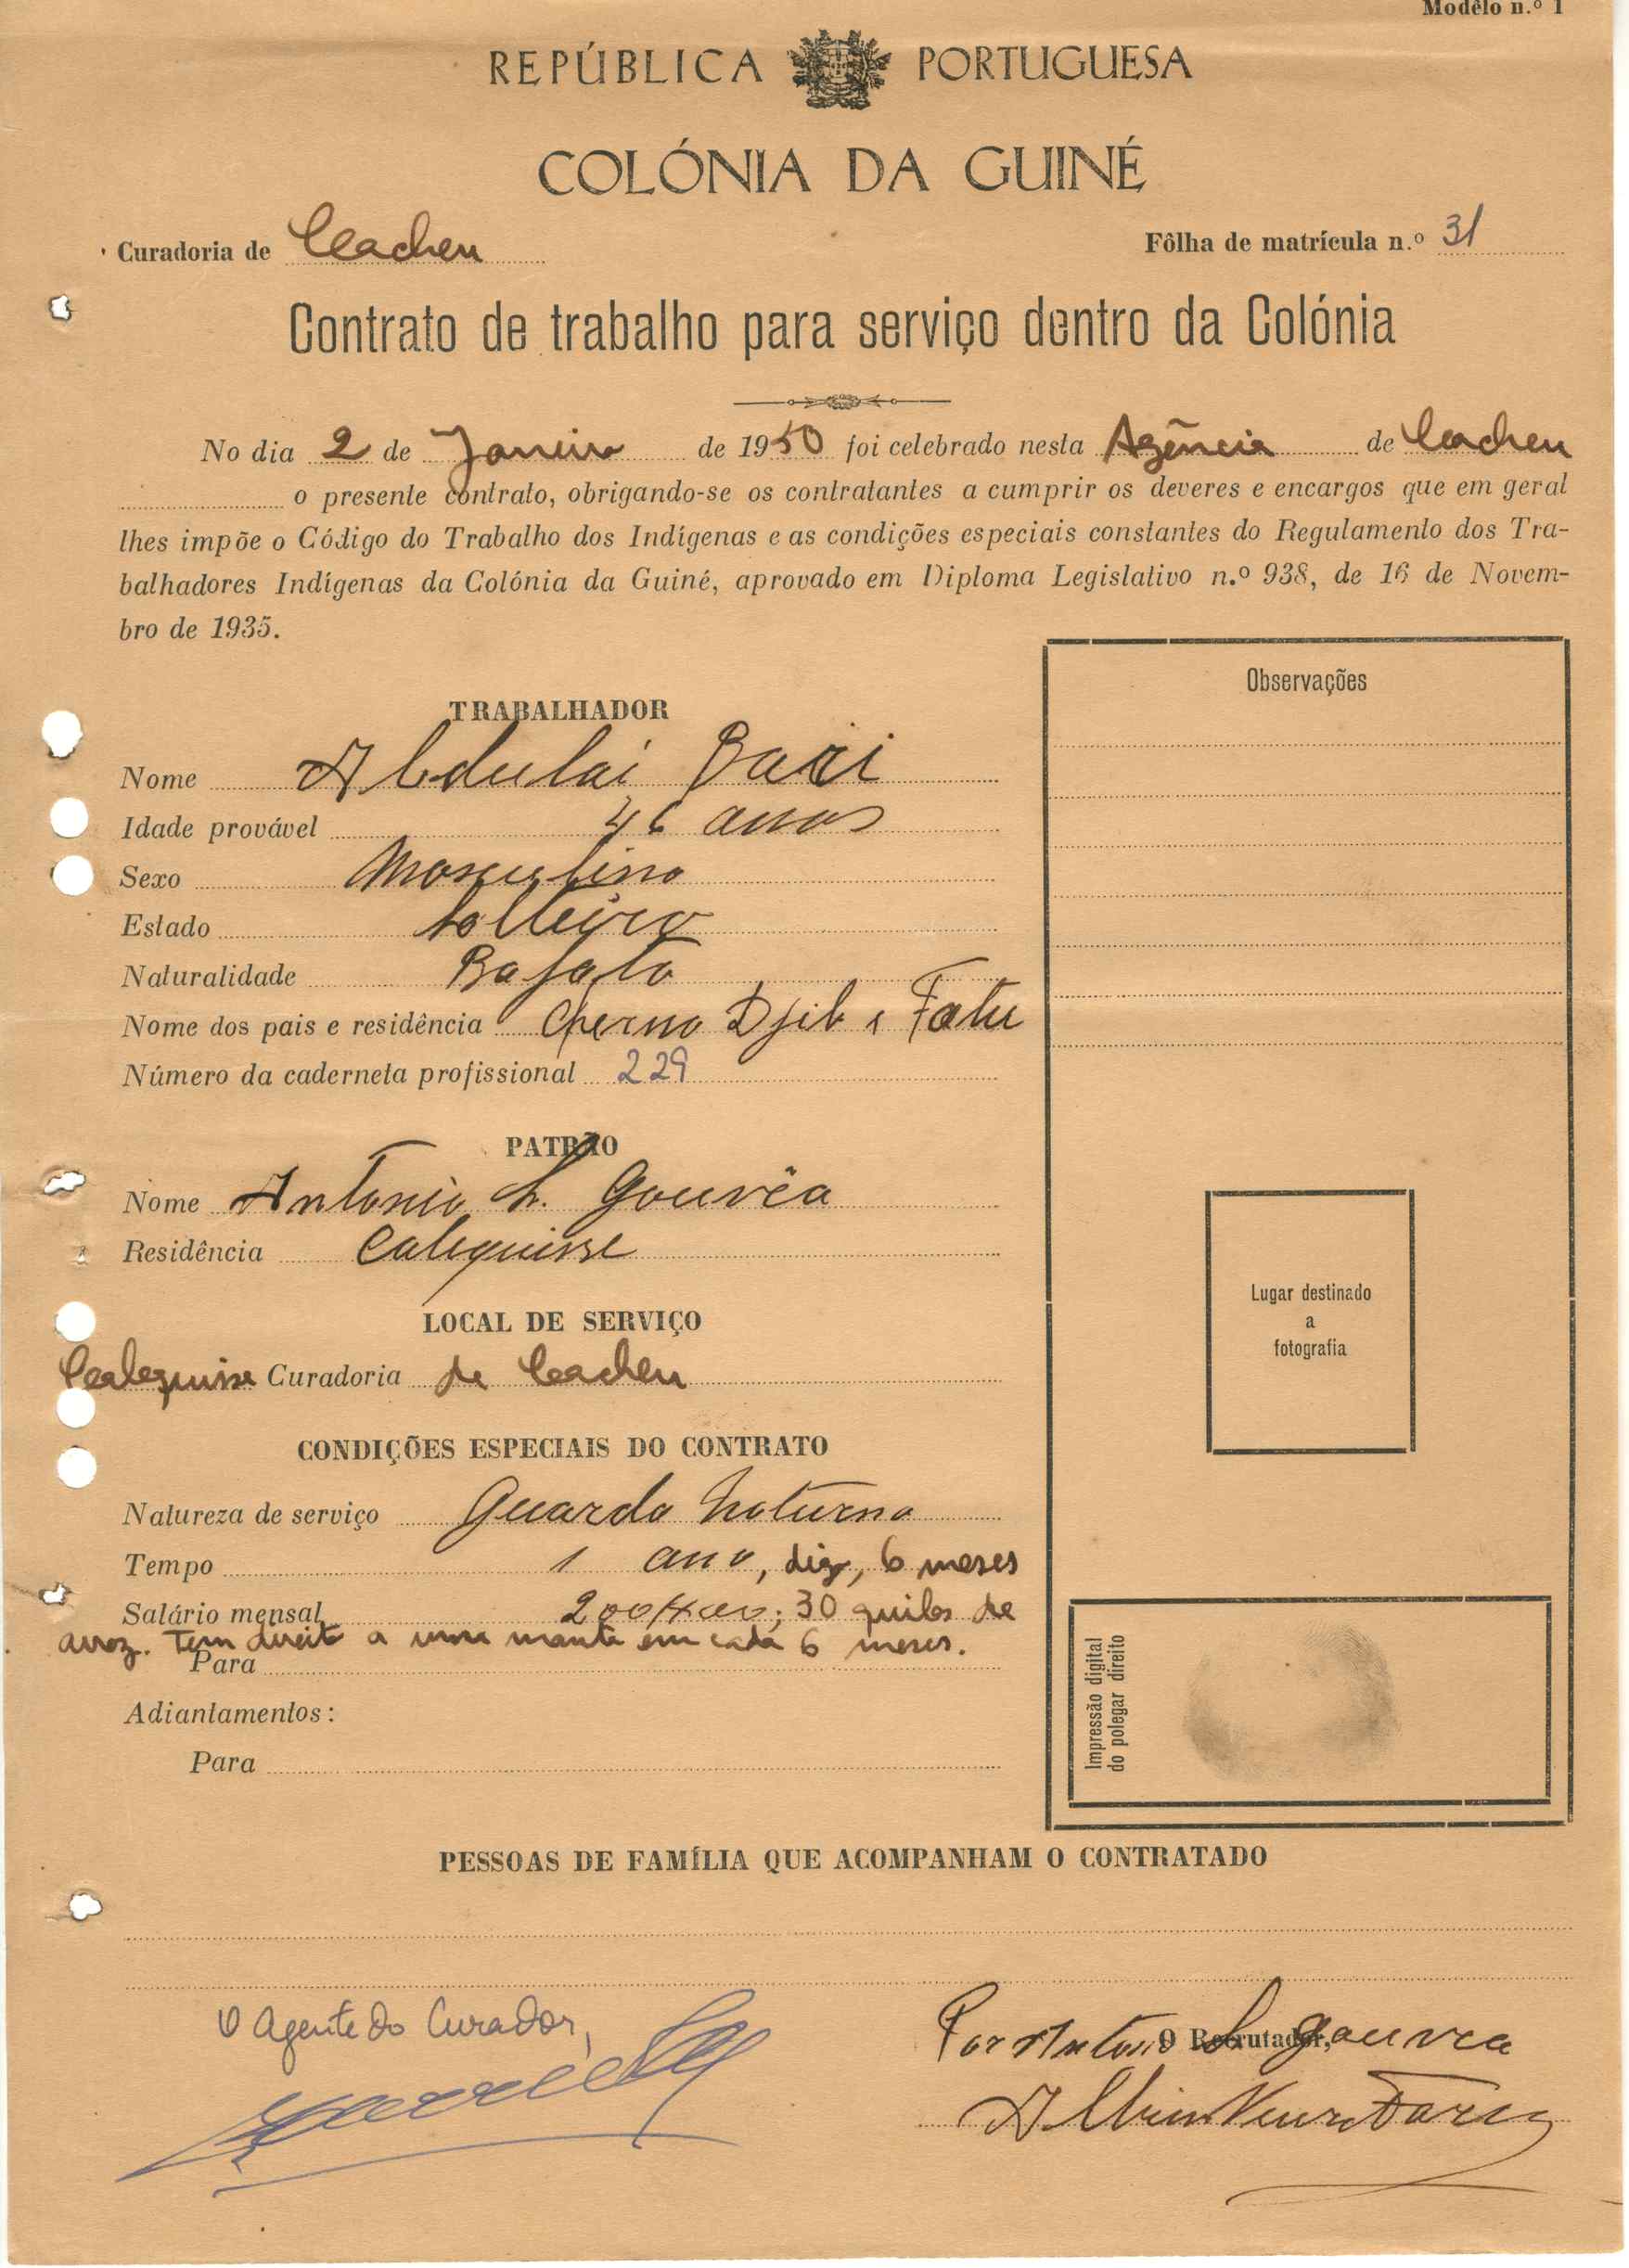 Modêlo n.º 1
REPÚBLICA PORTUGUESA
COLÓNIA DA GUINÉ
Curadoria de Cacheu Fôlha de matrícula n.º 31
Contrato de trabalho para serviço dentro da Colónia
No dia 2 de Janeiro de 1950 foi celebrado nesta Agência de Cacheu
o presente contrato, obrigando-se os contratantes a cumprir os deveres e encargos que em geral
lhes impõe o Código do Trabalho dos Indígenas e as condições especiais constantes do Regulamento dos Tra-
balhadores Indígenas da Colónia da Guiné, aprovado em Diploma Legislativo n.º 938, de 16 de Novem-
bro de 1935.
Observações
TRABALHADOR
Nome Abdulai Bari
Idade provável 46 anos
Sexo Masculino
Estado solteiro
Naturalidade Bafata
Nome dos pais e residência Cherno Djib e Fatu
Número da caderneta profissional 229
PATRÃO
Nome Antonio S. Gouvêa
Residência Calequisse
Lugar destinado
a
fotografia
LOCAL DE SERVIÇO
Calequisse Curadoria de Cacheu
CONDIÇÕES ESPECIAIS DO CONTRATO
Natureza de serviço Guarda Noturno
Tempo 1 ano, digo, 6 meses
Salário mensal 200; 30 quilos de
arroz. Tem direito a uma manta em cada 6 meses.
Para
Adiantamentos:
Para
Impressão digital
do polegar direito
PESSOAS DE FAMÍLIA QUE ACOMPANHAM O CONTRATADO
O Agente do Curador,
Por Antonio S Gouvea
O Recrutador,